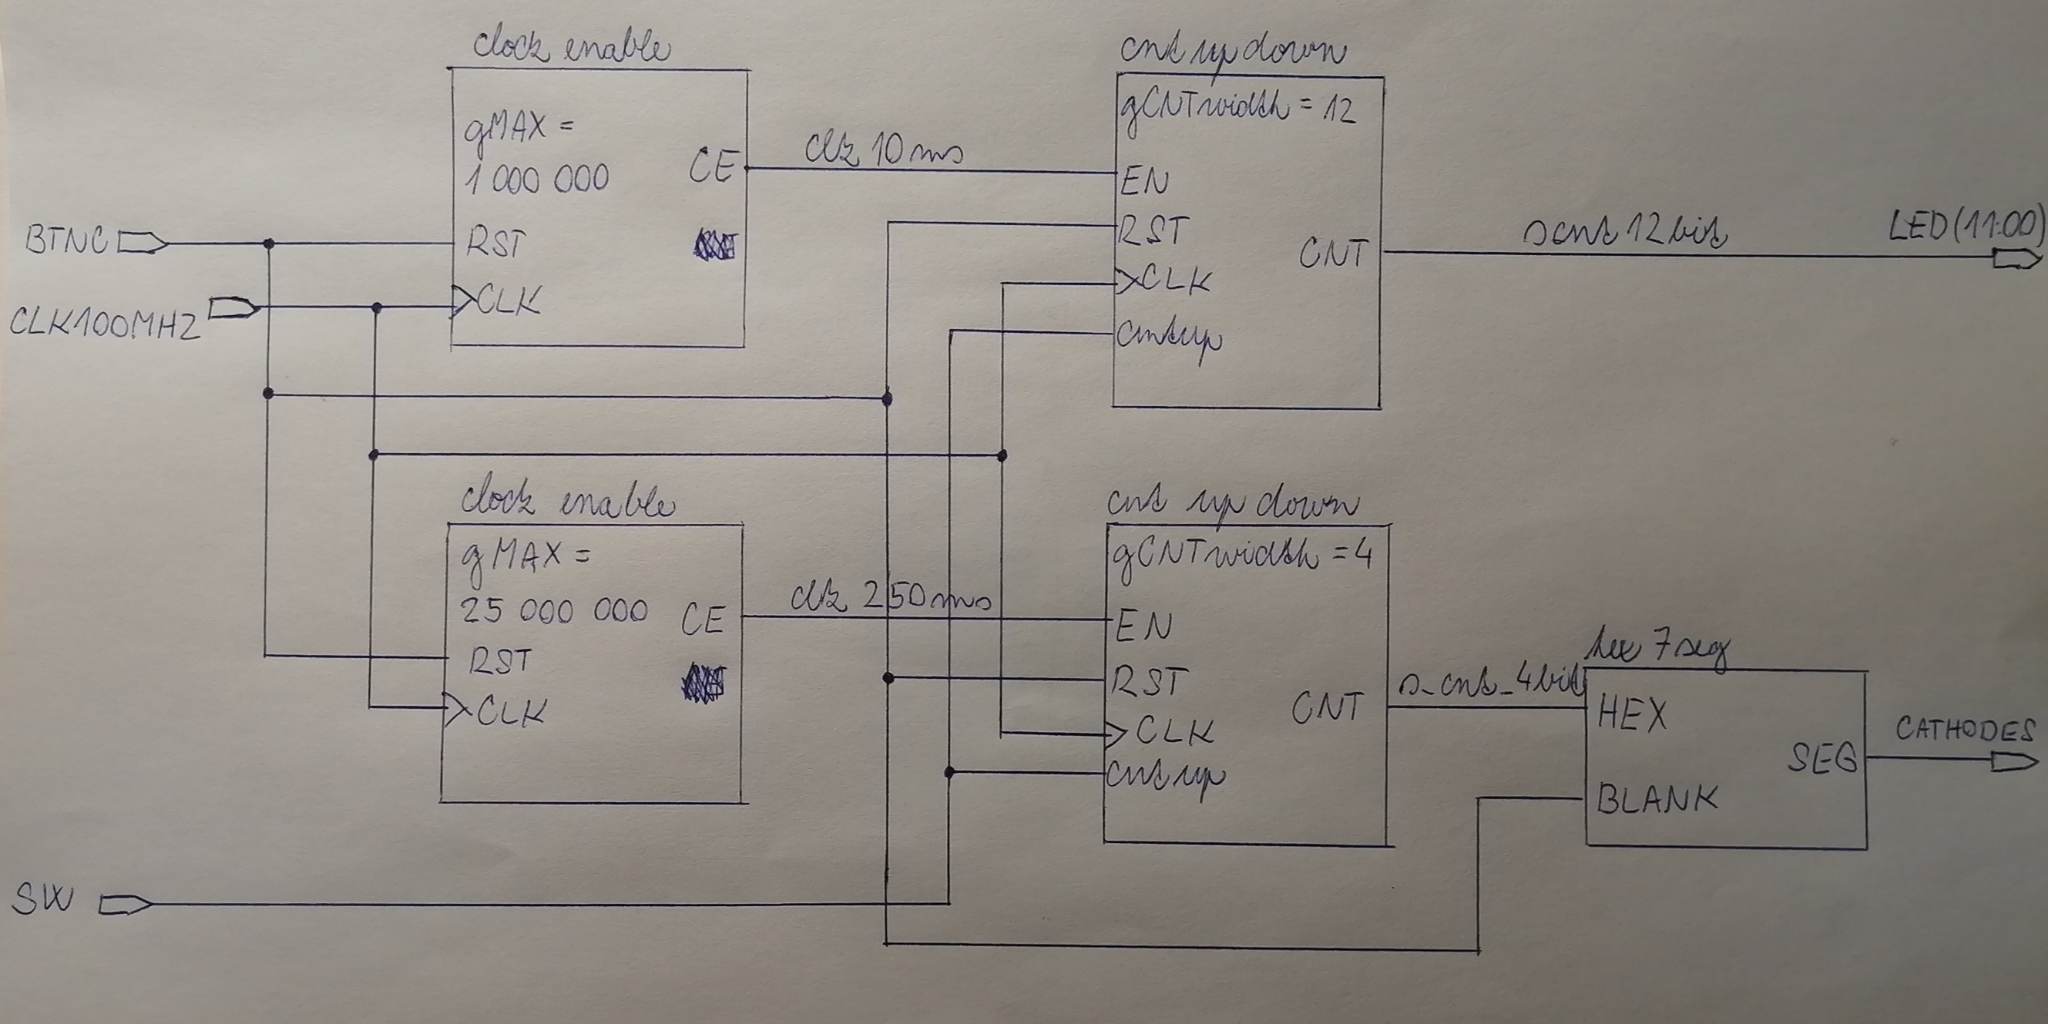 clock enable
gMAX =
1 000 000
CE
RST
CLK
BTNC
CLK100MHZ
clk 10ms
cnt up down
gCNTwidth = 12
EN
RST
CLK
cntup
CNT
scnt 12bit
LED(11:00)
clock enable
gMAX =
25 000 000
CE
RST
CLK
clk 250ms
cnt up down
gCNTwidth = 4
EN
RST
CLK
cnt up
CNT
s_cnt_4bit
hex 7seg
HEX
BLANK
SEG
CATHODES
SW